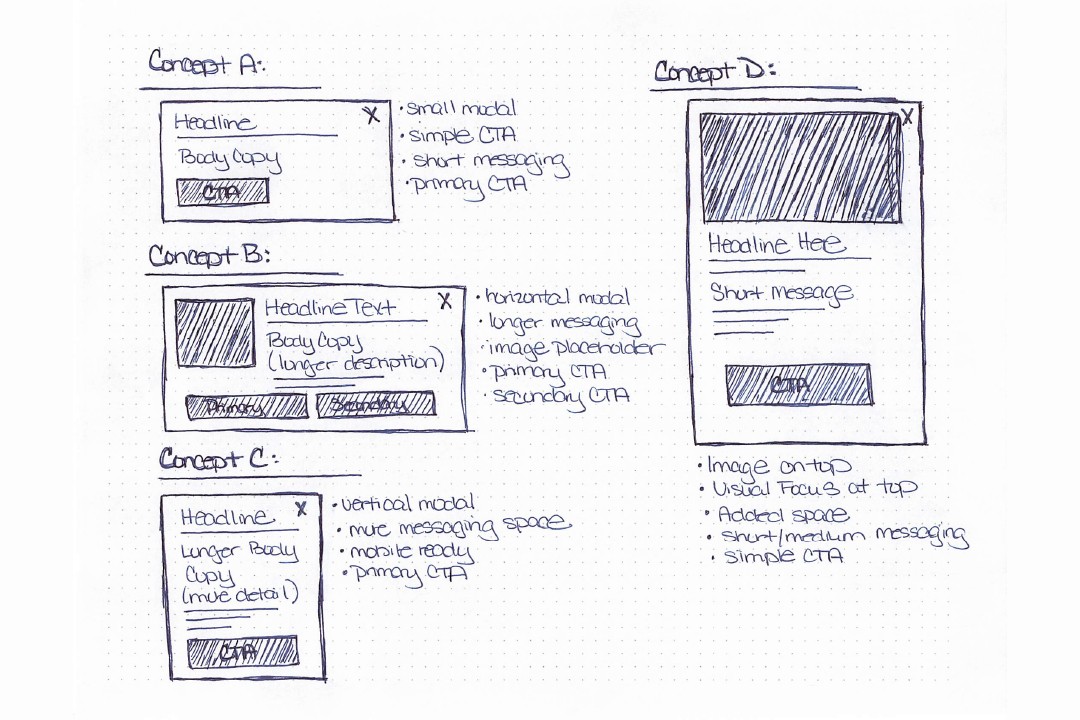 Concept A:
Headline
X
Body Copy
CTA
• small modal
• simple CTA
• short messaging
• primary CTA
Concept B:
Headline Text
X
Body Copy
(longer description)
Primary
Secondary
• horizontal modal
• longer messaging
• image placeholder
• primary CTA
• secondary CTA
Concept C:
Headline
X
Longer Body
Copy
(more detail)
CTA
• vertical modal
• more messaging space
• mobile ready
• primary CTA
Concept D:
X
Headline Here
Short Message
CTA
• Image on top
• Visual Focus at top
• Added space
• short/medium messaging
• simple CTA